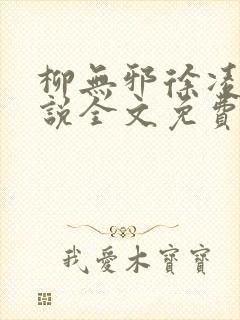 柳無邪徐凌
說全文免費
我愛木寶寶